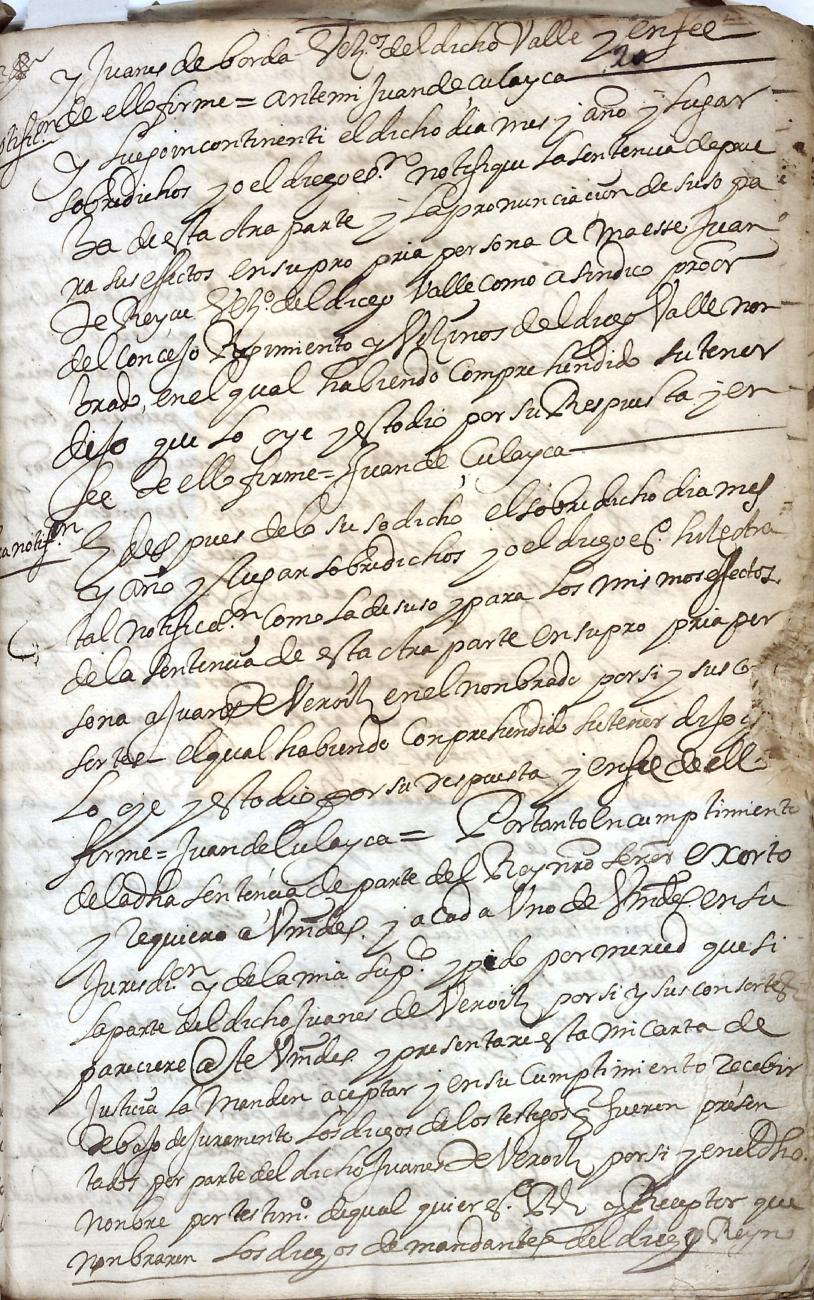 y Juanes de borda Vezos del dicho Valle y enfee
20
de ello firme = antemi Juan de Culayca
y luego incontinenti el dicho dia mes y año y lugar
sobredichos yo el dicho esno notifique la sentencia deprue
ba de esta otra parte y la pronunciacion de suso pa
ra sus effectos ensupro pria persona a Maesse Juan
de Vezo del dicho Valle como a sindico procor
del Concejo Regimiento y Vezinos del dicho Valle non
brado, en el qual habiendo Comprehendido su tenor
dijo que lo oye y esto dio por su Respuesta y en
fee de ello firme = Juan de Culayca
notifon
E despues delo su sodicho el sobredicho dia mes
y año y lugar sobredichos yo el dicho eso hize otra
tal notificaon Como la de suso y para los mismos effectos
de la sentencia de esta otra parte ensupro pria per
sona a Juanes de Veroiz en el nonbrado porsi y sus co
sortes el qual habiendo Conprehendido su tenor dijo q
Lo oye y esto dio por su Respuesta y enfee de ello
firme = Juan de Culayca = Por tanto En cumplimiento
de la dha sentencia de parte del Rey nro señor exorto
y requiero a Vmdes y acada Uno de Vmdes en su
Jurisdion y de la mia supco y pido por merced que si
la parte del dicho Juanes de Veroiz por si y sus consortes
pareciere ante Vmdes y presentare esta mi Carta de
Justicia la Manden aceptar y en su Cumplimiento recebir
debajo de Juramento Los dichos de los testigos q fueren presen
tados por parte del dicho Juanes de Veroiz porsi y en el dho
nonbre por testimo de qual quier eso Rl o Receptor que
nonbraren Los dichos demandantes del dicho Reyno